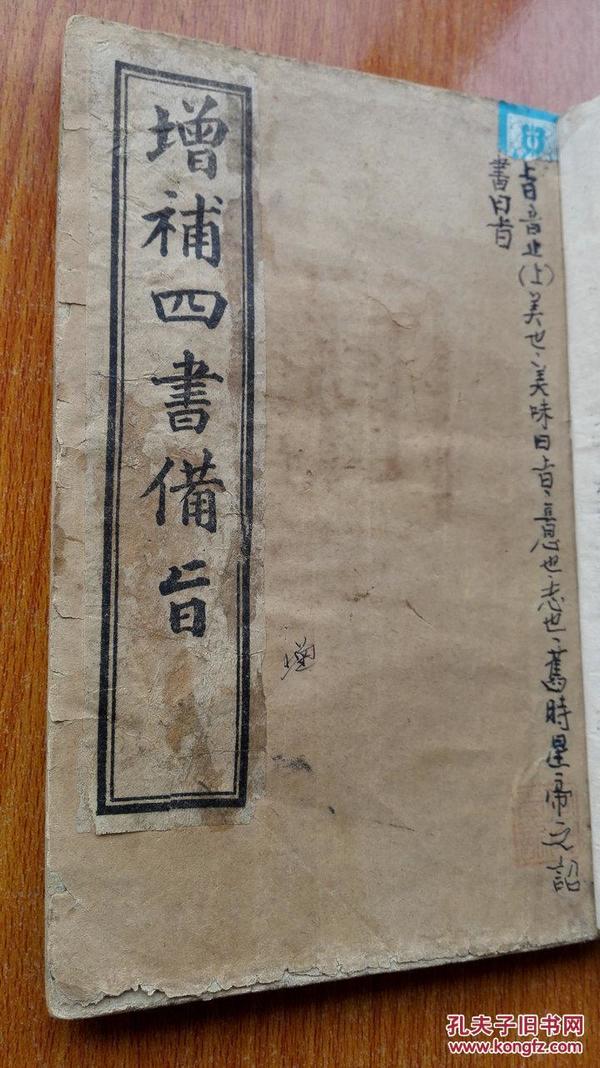 增補四書備旨
旨音止(上)美也、美味曰旨、意也、志也、舊時皇帝之詔
書曰旨
孔夫子旧书网
www.kongfz.com